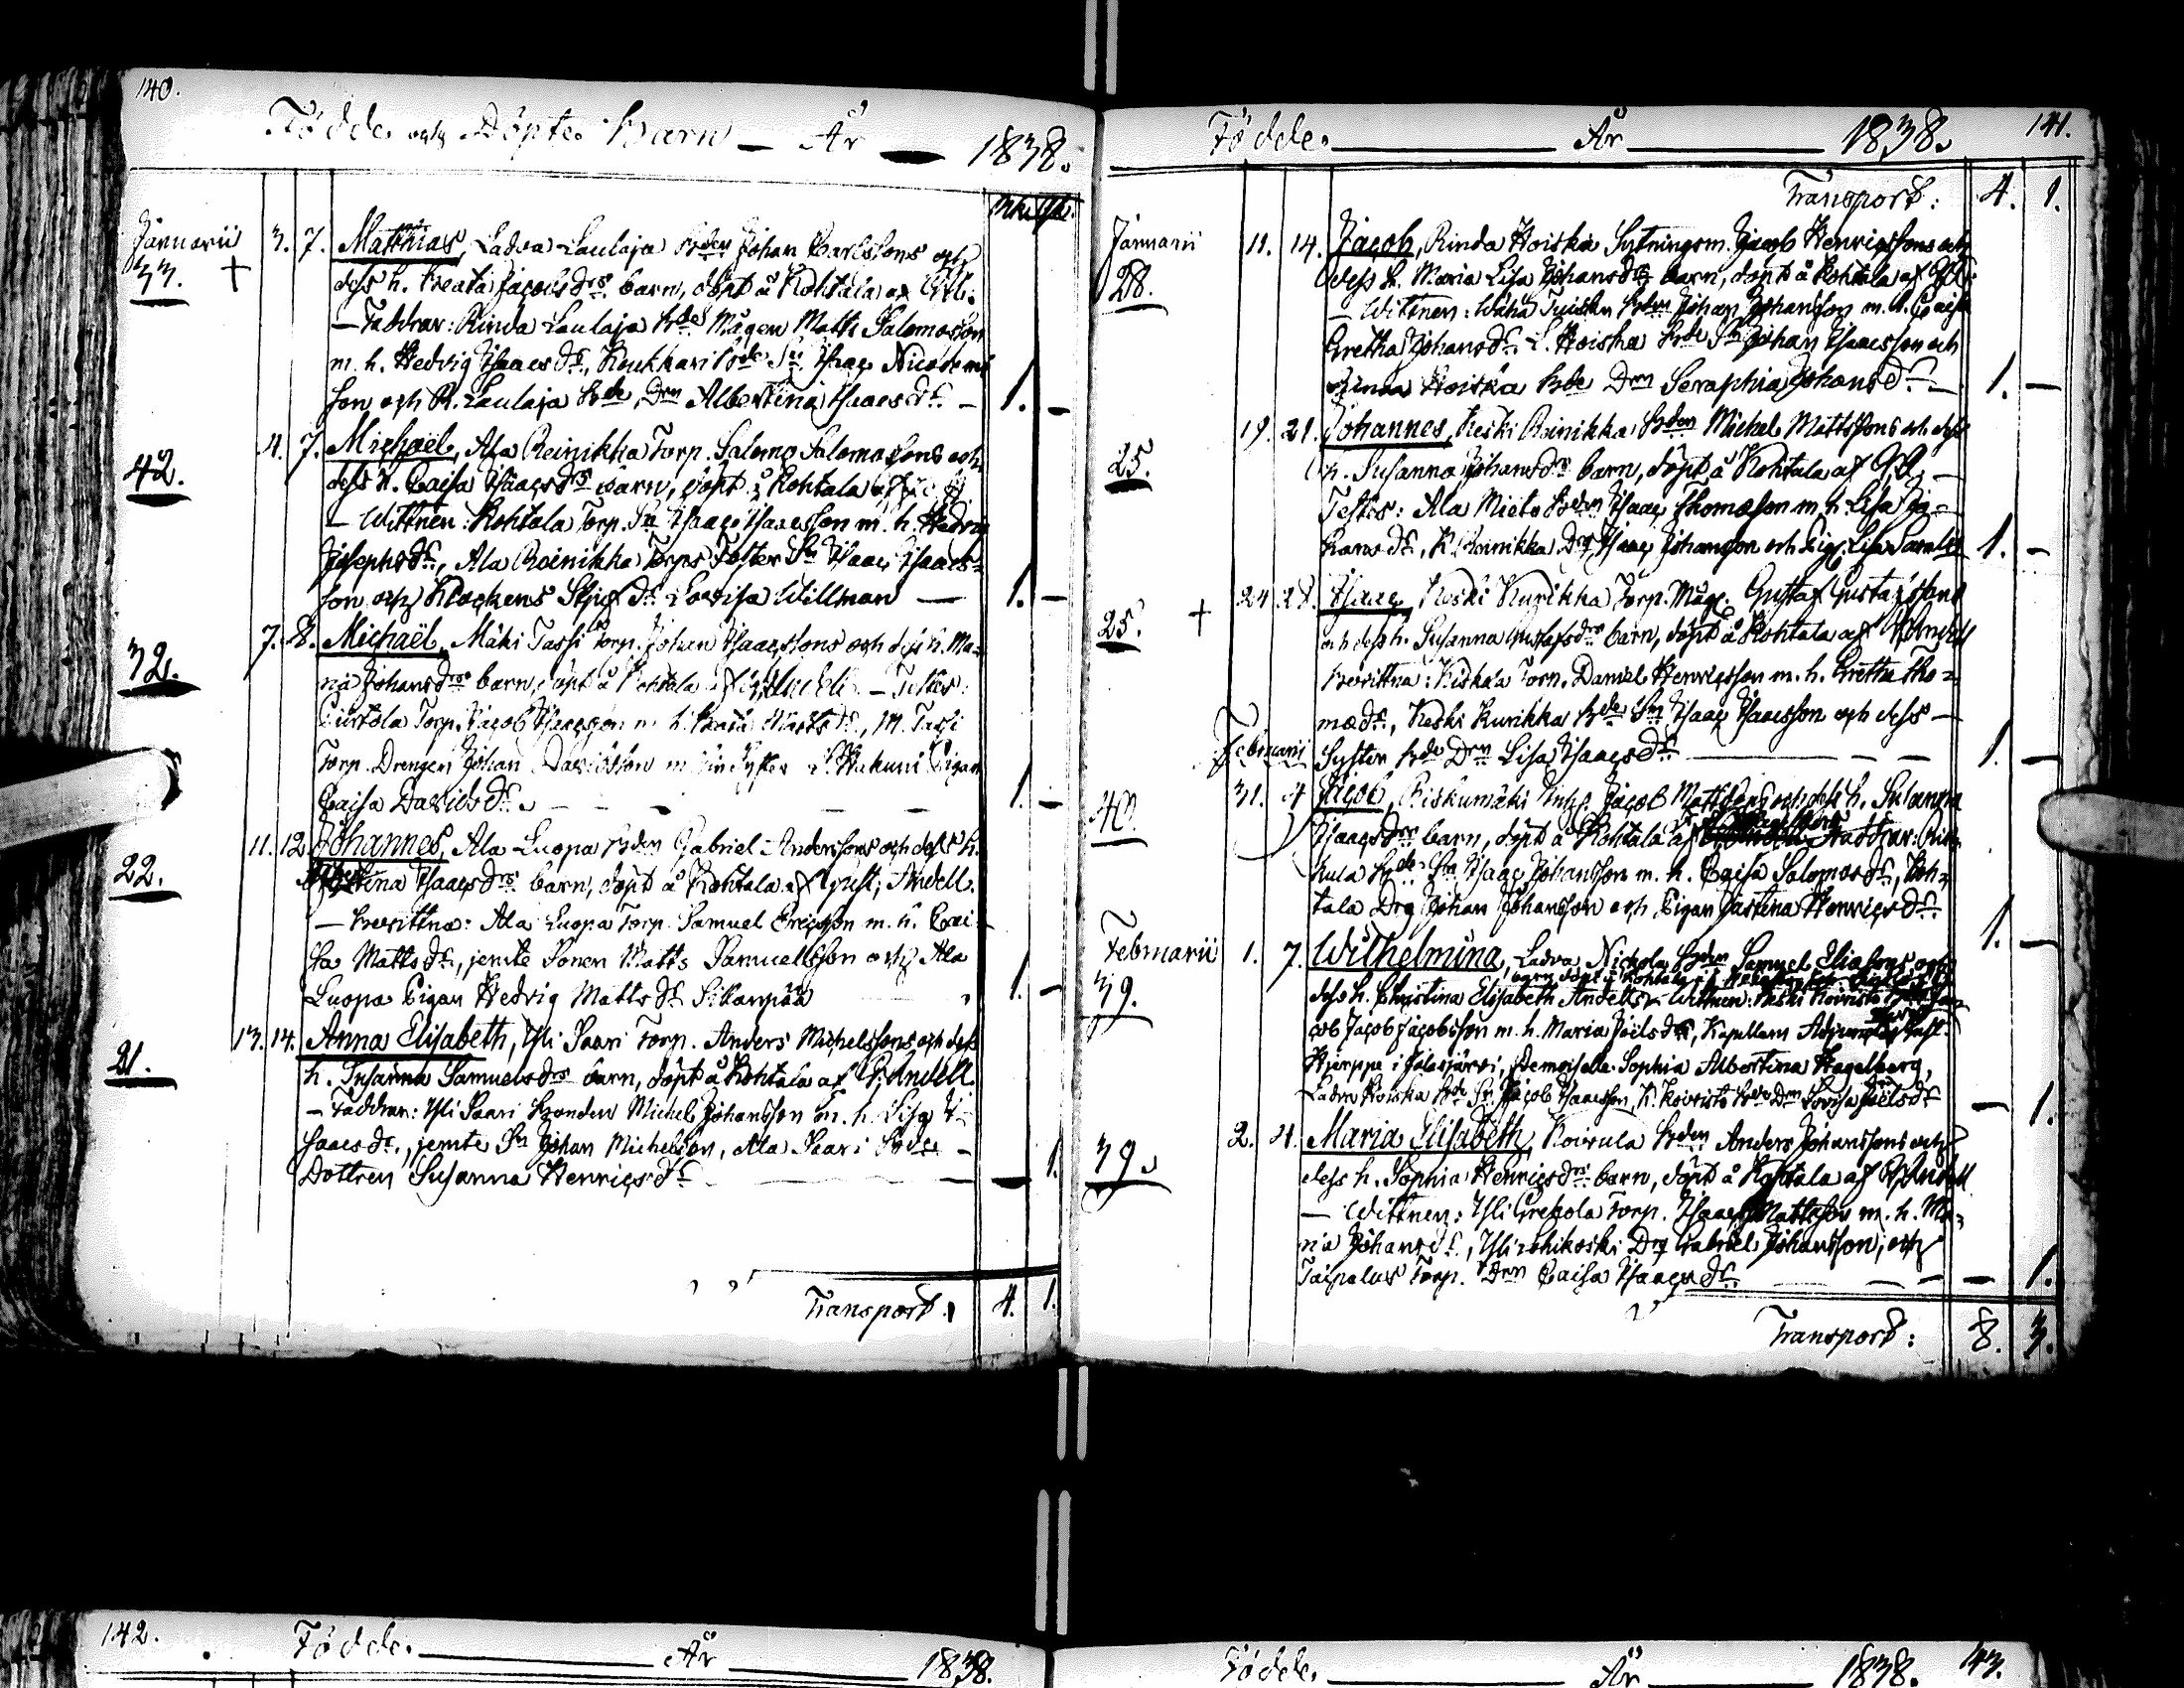 140.
Födde och Döpte Barn — År — 1838.
Januarii 3. 7. Matthias, Ladva Laulaja Bden Johan Carlssons och
33. + dess h. Beata Jacobsdrs barn, döpt å Kohtala af
— Faddrar: Rinda Laulaja Bde Mågen Matts Salomosson
m. h. Hedvig Isaacsdr, Koukkari Bde Sn Isaac Nicodemi
son och R. Laulaja Bde Drn Albertina Isaacsdr — 1. —
4. 7. Michaël, Ala Reinikka Torp. Salomo Salomossons och
42. dess h. Caisa Isaacsdrs barn, döpt å Kohtala af
— Wittnen: Kohtala Torp. Sn Isaac Isaacsson m. h. Hedvig
Josephsdr, Ala Reinikka Torps Foster Sn Isaac Isaacs-
son och Klockens Stjuf dr Lovisa Willman — 1. —
7. 8. Michaël, Mäki Tassi Torp. Johan Isaacssons och dess h. Ma-
32. ria Johansdrs barn, döpt å Kohtala af — Testes:
Torp. Jacob Isaacsson m. h. Mattsdr, M. Tassi
Torp. Drengen Johan Davidsson m. sin Syster Pigan
Caisa Davidsdr. — — — 1. —
11. 12. Johannes, Ala Luopa Bden Gabriel Anderssons och dess h.
22. Isaacsdrs barn, döpt å Kohtala af Gust. Andell.
— Bevittna: Ala Luopa Torp. Samuel Ericsson m. h. Cai-
sa Mattsdr, jemte Sonen Matts Samuelsson och Ala
Luopa Pigan Hedvig Mattsdr Sillanpää 1. —
13. 14. Anna Elisabeth, Yli Saari Torp. Anders Michelssons och dess
21. h. Susanna Samuelsdrs barn, döpt å Kohtala af G. Andell
— Faddrar: Yli Saari Bonden Michel Johansson m. h. Lisa I-
saacsdr, jemte Sn Johan Michelsson, Ala Saari Bde
Dottren Susanna Henricsdr — — 1.
Transport. 4. 1.
Födde. År 1838. 141.
Transport: 4. 1.
Januarii 11. 14. Jacob, Rinda Koiska Sytningsm. Jacob Henricssons och
28. dess h. Maria Lisa Johansdrs barn, döpt å Kohtala af
— Wittnen: Wähä Tuisku Bden Johan Johansson m. h. Caisa
Gretha Johansdr. L. Koiska Bde Sn Johan Isaacsson och
Rinda Koiska Bde Drn Seraphia Johansdr — 1. —
19. 21. Johannes, Keski Reinikka Bden Michel Mattssons och dess
25. h. Susanna Johansdrs barn, döpt å Kohtala af G. A. —
Testes: Ala Mieto Bden Isaac Thomæson m. h. Lisa Ja-
R. Reinikka Drg Isaac Johansson och Pig. Lisa 1. —
24. 28. Isaac, Keski Kurikka Torp. Måg. Gustaf Gustafssons
25. + och dess h. Susanna Gustafsdrs barn, döpt å Kohtala af G. Andell
Bevittna: Kiskola Torp. Daniel Henricsson m. h. Gretha Tho-
mædr, Keski Kurikka Bde Sn Isaac Isaacsson och dess —
Februarii Syster Bde Drn Lisa Isaacsdr — — — 1. —
31. 4 Jacob, Riskumäki Inhys. Jacob Mattssons och dess h. Susanna
40. Isaacsdrs barn, döpt å Kohtala af Faddrar:
kula Bde Sn Isaac Johansson m. h. Caisa Salomosdr, Koh-
tala Drg Johan Johansson och Pigan Justina Henricsdr. 1. —
Februarii 1. 7. Wilhelmina, Ladva Nickola Bden Samuel Eliasons och
barn döpt å Kohtala af
39. dess h. Christina Elisabeth Andellsdr. Wittnen: Keski Koivisto
cob Jacob Jacobsson m. h. Maria Joëlsdr, Kapellans Adjuncten Gust.
Hjerppe i Jalasjärvi, Demoiselle Sophia Albertina Hagelberg,
Ladva Koiska Bde Sn Jacob Isaacsson, K. Koivisto Bde Drn Lovisa Joëlsdr — 1.
2. 4. Maria Elisabeth, Koivula Bden Anders Johanssons och
39. dess h. Sophia Henricsdrs barn, döpt å Kohtala af G. Andell
— Wittnen: Yli Grekola Torp. Isaac Mattsson m. h. Ma-
ria Johansdr, Drg Gabriel Johansson, och
Taipalus Torp. Drn Caisa Isaacsdr — — — 1.
Transport: 8. 3.
142. Födde. År 1838.
Födde. År 1838. 143.